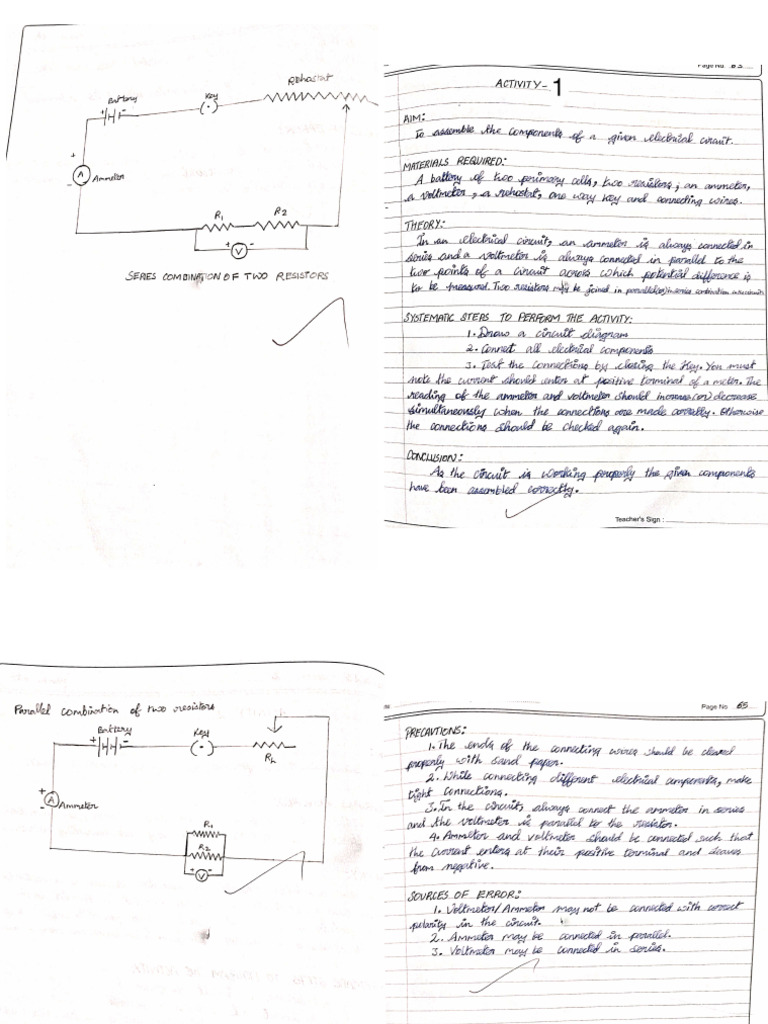 Battery
Key
Rehostat
+
-
+
A
Ammeter
-
R1
R2
V
SERES COMBINATION OF TWO RESISTORS
Page No 63
ACTIVITY-1
AIM:
To assemble the components of a given electrical circuit.
MATERIALS REQUIRED:
A battery of two primary cells, two resistors, an ammeter,
a voltmeter, a rehostat, one way key and connecting wires.
THEORY:
In an electrical circuit, an ammeter is always connected in
series and a voltmeter is always connected in parallel to the
two points of a circuit across which potential difference is
to be measured. Two resistors may be joined in parallel(or) in series combination in a circuit
SYSTEMATIC STEPS TO PERFORM THE ACTIVITY:
1. Draw a circuit diagram
2. Connect all electrical components
3. Test the connections by closing the Key. You must
note the current should enter at positive terminal of a meter. The
reading of the ammeter and voltmeter should increase (or) decrease
simultaneously when the connections are made correctly. Otherwise
the connections should be checked again.
CONCLUSION:
As the circuit is working properly the given components
have been assembled correctly.
Teacher's Sign :
Parallel combination of two resistors
Battery
Key
+
-
Rh
+
A
Ammeter
-
R1
R2
V
Page No 65
PRECAUTIONS:
1. The ends of the connecting wires should be cleaned
properly with sand paper.
2. While connecting different electrical components, make
tight connections.
3. In the circuit, always connect the ammeter in series
and the voltmeter is parallel to the resistor.
4. Ammeter and voltmeter should be connected such that
the current enters at their positive terminal and leaves
from negative.
SOURCES OF ERROR:
1. Voltmeter/Ammeter may not be connected with correct
polarity in the circuit.
2. Ammeter may be connected in parallel.
3. Voltmeter may be connected in series.